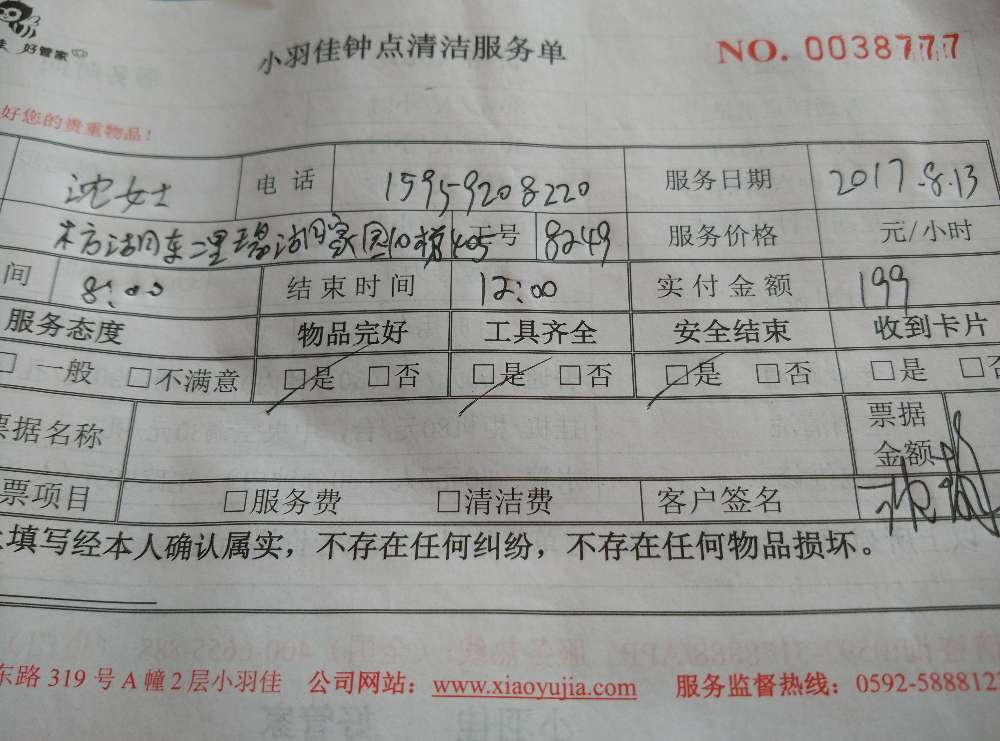 好管家
小羽佳钟点清洁服务单
NO. 0038777
好您的贵重物品！
沈女士 电话 15959208220 服务日期 2017.8.13
工号 8249 服务价格 元/小时
间 8:00 结束时间 12:00 实付金额 199
服务态度 物品完好 工具齐全 安全结束 收到卡片
□一般 □不满意 □是 □否 □是 □否 □是 □否 □是 □否
票据名称 票据金额
票项目 □服务费 □清洁费 客户签名
填写经本人确认属实，不存在任何纠纷，不存在任何物品损坏。
东路 319 号 A 幢 2 层小羽佳 公司网站：www.xiaoyujia.com 服务监督热线：0592-5888127